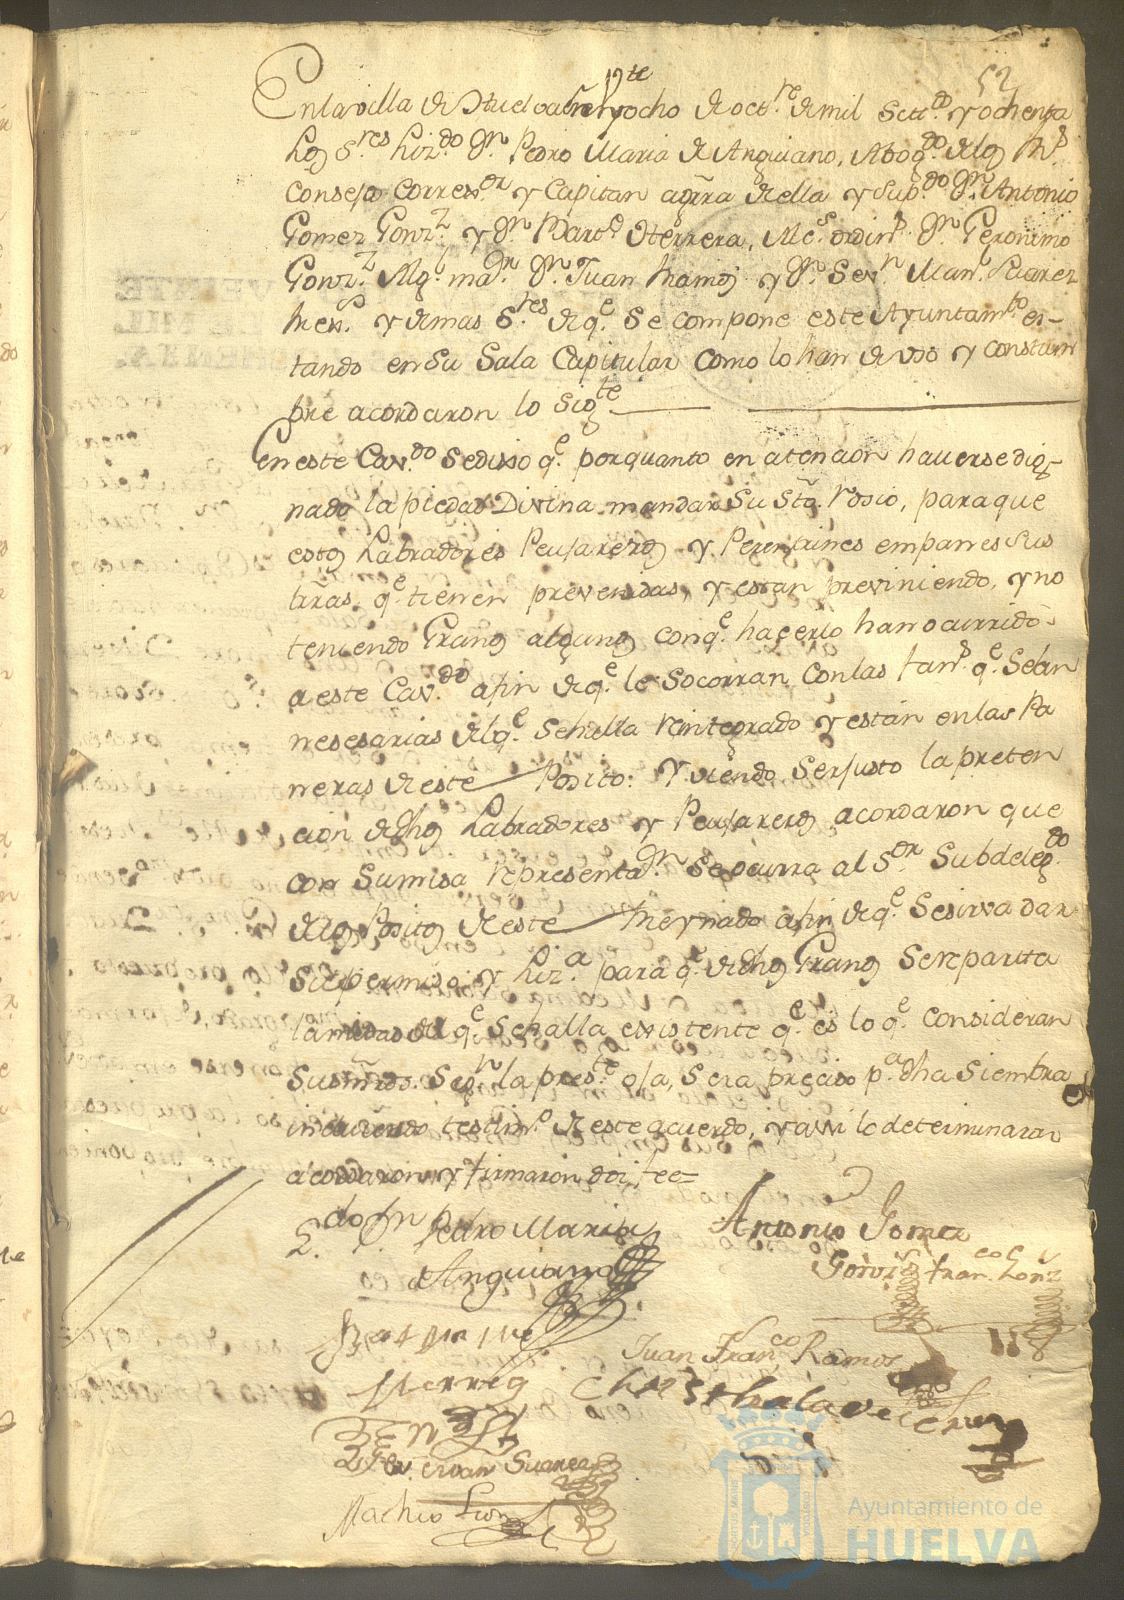 52
En la villa de Huelva en veyte y ocho de octre. de mil Setts. y ochenta
los Sres. Lizdo. Dn. Pedro Maria de Anguiano, Abogdo. de los Rs.
Consejos Corregor. y Capitan aguerra de ella y Supdo. Dn. Antonio
Gomez Gonzz. y Dn. Barte. Herrera, Alcs. ordins. Dn. Geronimo
Gonzz. Algl. mor. Dn. Juan Ramos y Dn. Sevn. Manl. Suarez
Regs. y demas Sres. de qe. Se compone este Ayuntamto. es-
tando en su Sala Capitular como lo han de uso y constum
bre acordaron lo Sigte.
En este Cavdo. Se dixo qe. por quanto en atencion haverse dig-
nado la piedad Divina mandar Su Sto. Rosio, para que
estos Labradores Peujareros y Perentrines empanen sus
tierras qe. tienen prevenidas, y estan previniendo, y no
teniendo Granos algunos con qe. hacerlo han ocurrido
a este Cavdo. afin de qe. le Socorran con las fans. qe. Sean
nesesarias del qe. Se halla reintegrado y están en las Pa
neras de este Posito: Y viendo Ser justo la preten
cion de dhos Labradores y Peujareros acordaron que
con Sumisa representan. Se ocurra al Sor. Subdelegdo.
de los Positos de este Reynado afin de qe. Se sirva dar
Su permiso y Liza. para qe. de dhos Granos Se reparta
la mitad del qe. Se halla existente qe. es lo qe. consideran
Sus mrds. Segn. la preste. oja, Sera preciso pa. dha Siembra
incluiendo testimo. de este acuerdo, y assi lo determinaron
acordaron y firmaron doi fee=
Ldo. Dn. Pedro Maria
de Anguiano
Antonio Gomez
Gonz. Franco. Gonz
Bartolome
Herrera
Juan Franco. Ramos
Sevn. Man Suarez
Ayuntamiento de
HUELVA